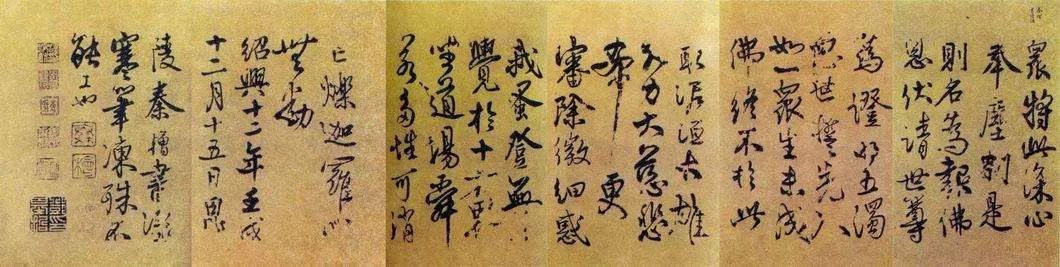 衆將此深心
奉塵刹是
則名為報佛
恩伏請世尊
為證明五濁
惡世誓先入
如一衆生未成
佛終不於此
取泥洹大雄
大力大慈悲
希更
審除微細惑
我蚤登無上
覺於十方界
坐道場舜
若多性可消
亡爍迦羅心
無動
紹興十二年壬戌
十二月十五日
陵秦檜書
寒筆凍殊不
能工也